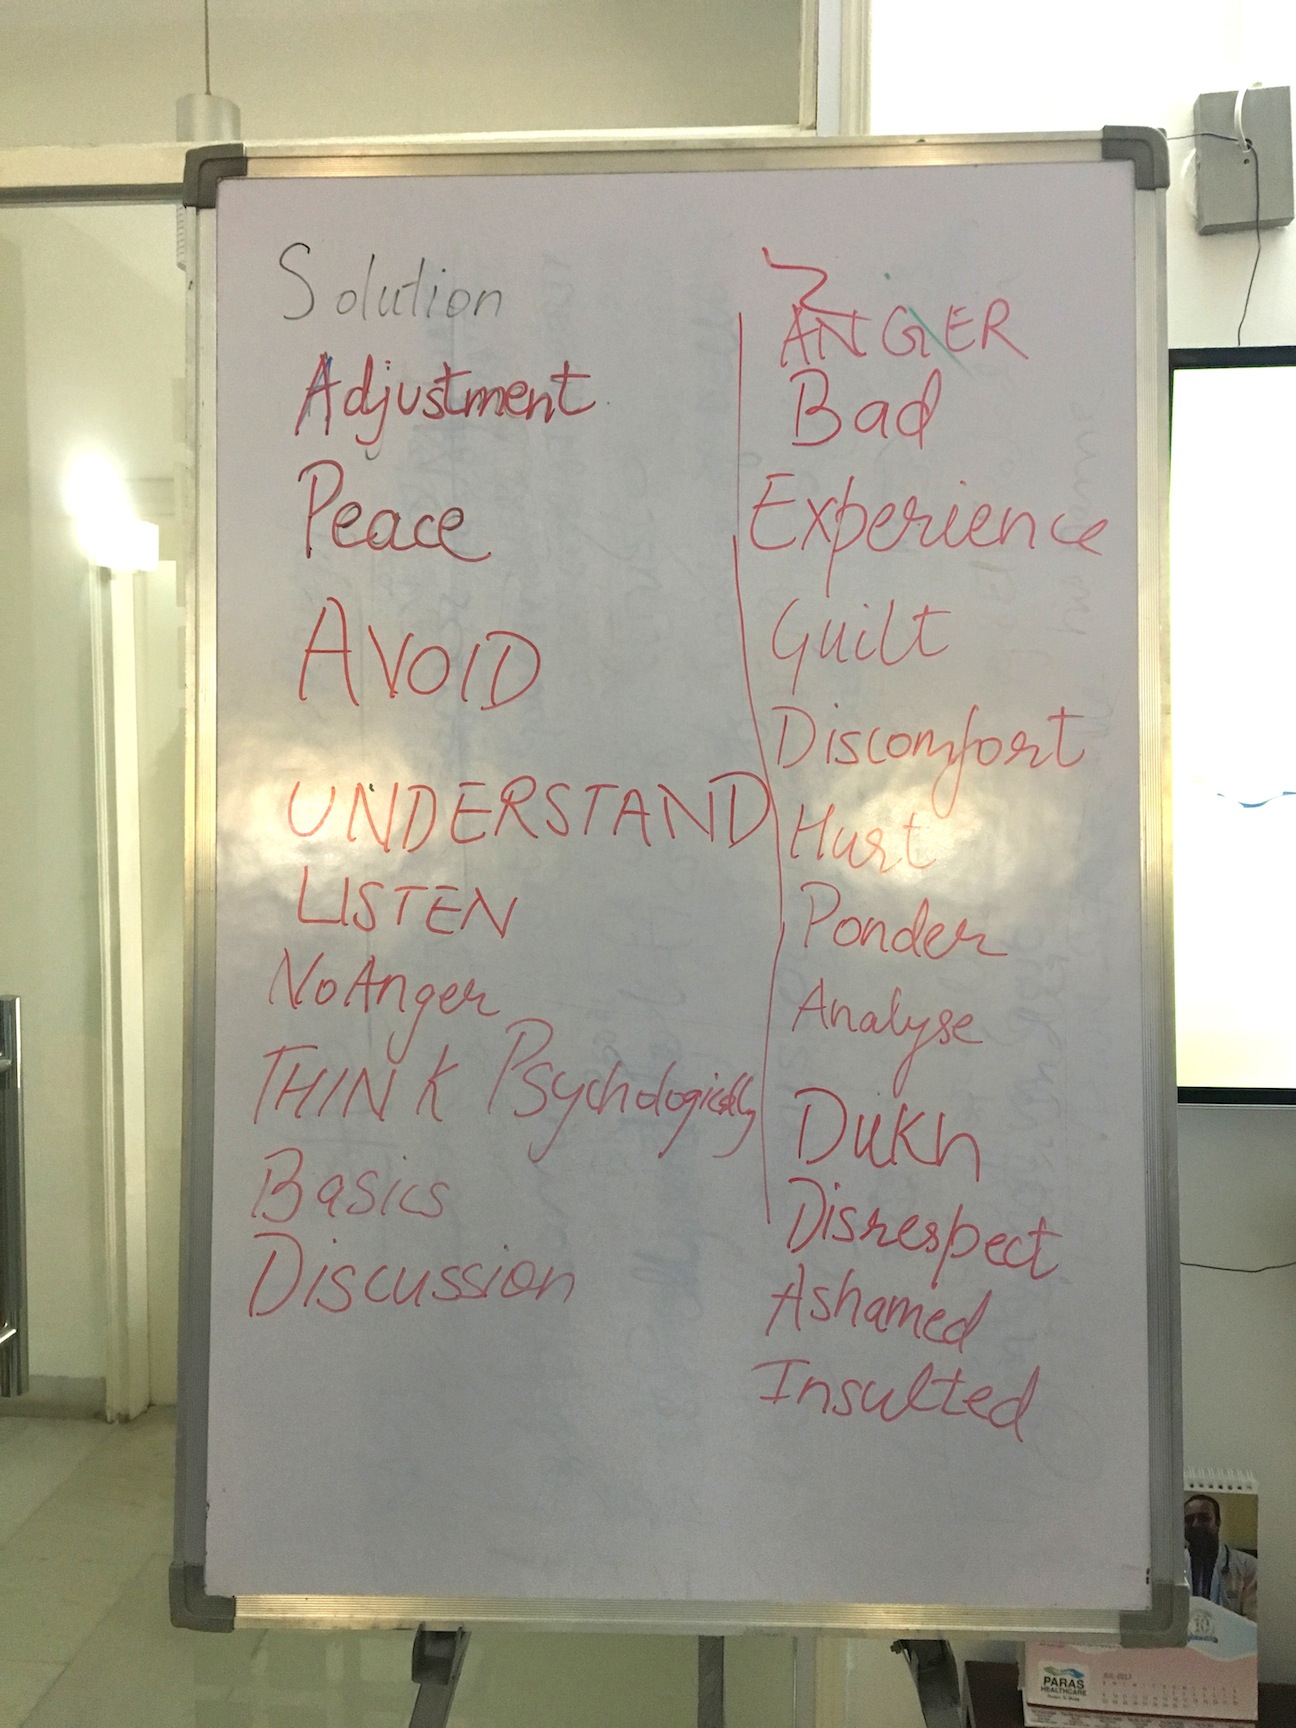 Solution
Adjustment
Peace
AVOID
UNDERSTAND
LISTEN
No Anger
THINK Psychologically
Basics
Discussion
ANGER
Bad
Experience
Guilt
Discomfort
Hurt
Ponder
Analyse
Dukh
Disrespect
Ashamed
Insulted
PARAS
HEALTHCARE